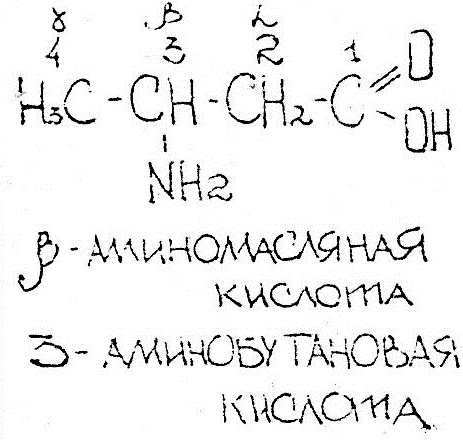 γ β α
4 3 2 1
H3C - CH - CH2 - C = O
- OH
NH2
β - АМИНОМАСЛЯНАЯ
КИСЛОТА
3 - АМИНОБУТАНОВАЯ
КИСЛОТА